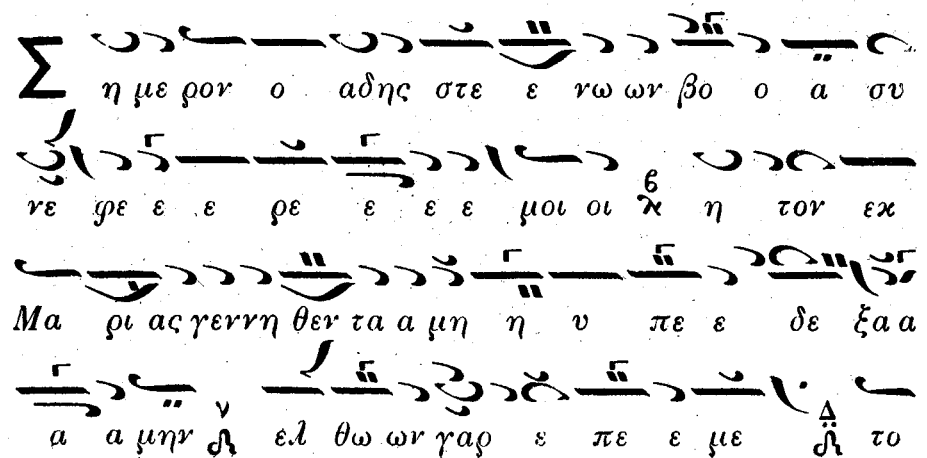 Σ η με ρον ο αδης στε ε νω ων βο ο α συ
νε φε ε ε ρε ε ε ε μοι οι η τον εκ
Μα ρι ας γεννη θεν τα α μη η υ πε ε δε ξα α
α α μην ελ θω ων γαρ ε πε ε με το